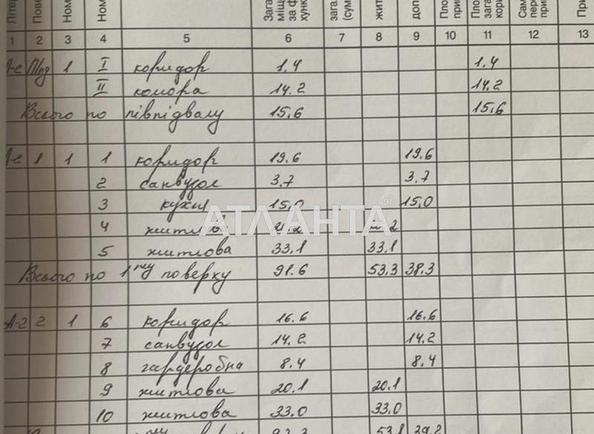 Літер
Пові
Ном
Ном
Зага
площ
за ф
хунк
зага
(сум
жит
доп
Пло
при
Пло
зага
кори
Сам
пере
при
При
1 2 3 4 5 6 7 8 9 10 11 12 13
П/пд 1 I коридор 1,4 1,4
II комора 14,2 14,2
Всього по півпідвалу 15,6 15,6
1 1 1 коридор 19.6 19.6
2 санвузол 3,7 3.7
3 кухня 15,0 15,0
4 житлова 2
5 житлова 33,1 33,1
Всього по 1му поверху 91.6 53,3 38,3
А-2 2 1 6 коридор 16.6 16.6
7 санвузол 14,2 14,2
8 гардеробна 8.4 8.4
9 житлова 20.1 20.1
10 житлова 33,0 33,0
53,1 39,2
АТЛАНТА